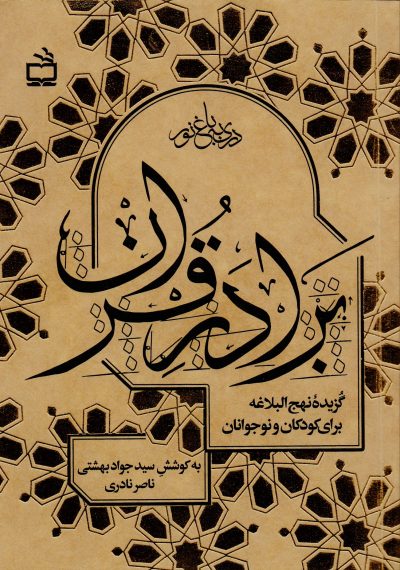 دری به باغ نور
برادر قرآن
گزیدهٔ نهج البلاغه
برای کودکان و نوجوانان
به کوشش سید جواد بهشتی
ناصر نادری